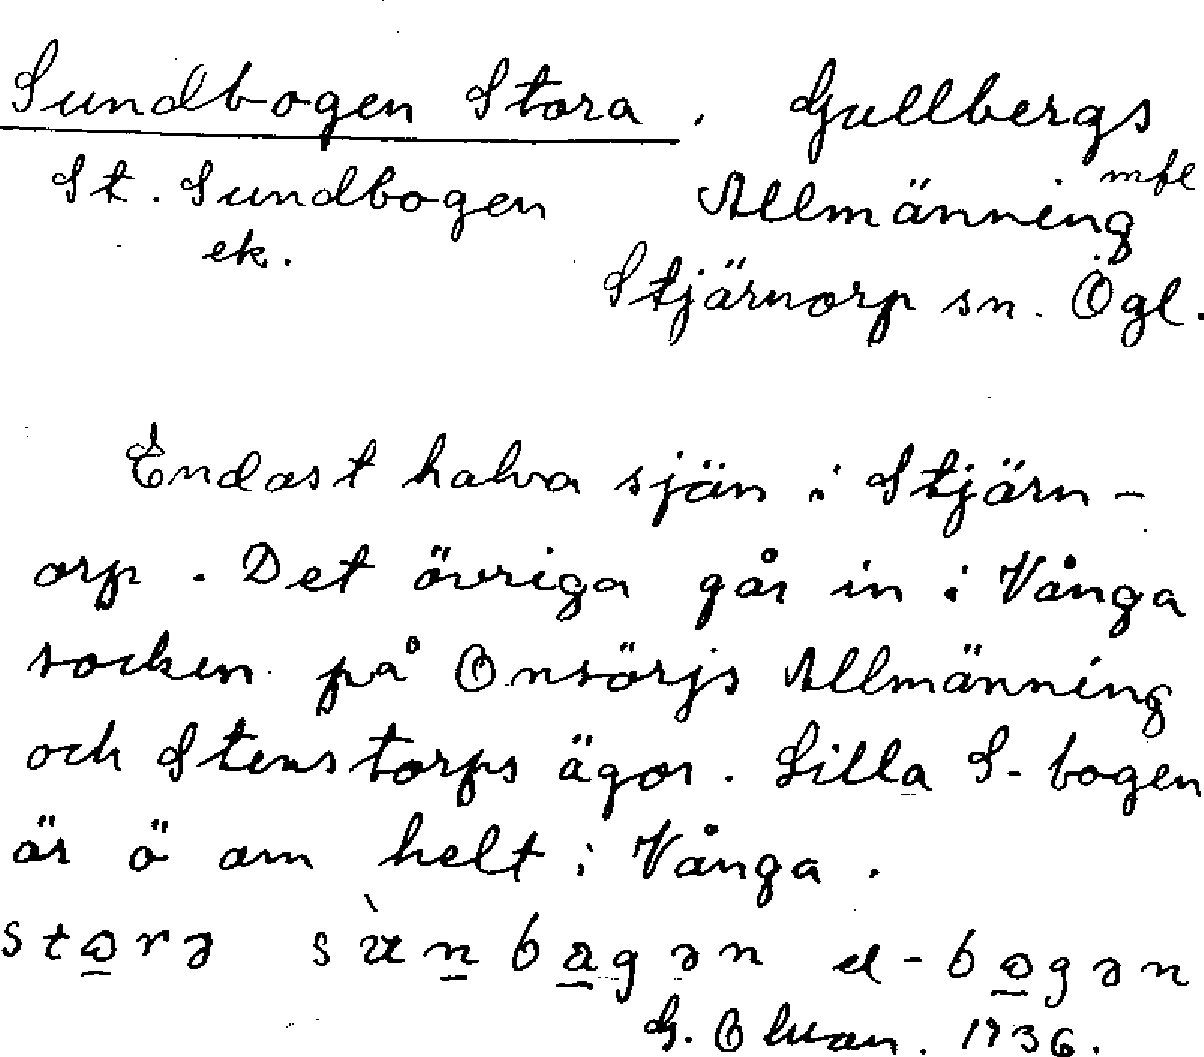 Sundbogen Stora. Gullbergs
St. Sundbogen Allmänning mfl
ek. Stjärnorp sn. Ögl.
Endast halva sjön i Stjärn-
orp. Det övriga går in i Vånga
socken på Onsörjs Allmänning
och Stenstorps ägor. Lilla S-bogen
är ö om helt i Vånga.
storə sùnbogən el-bogən
G. 1936.